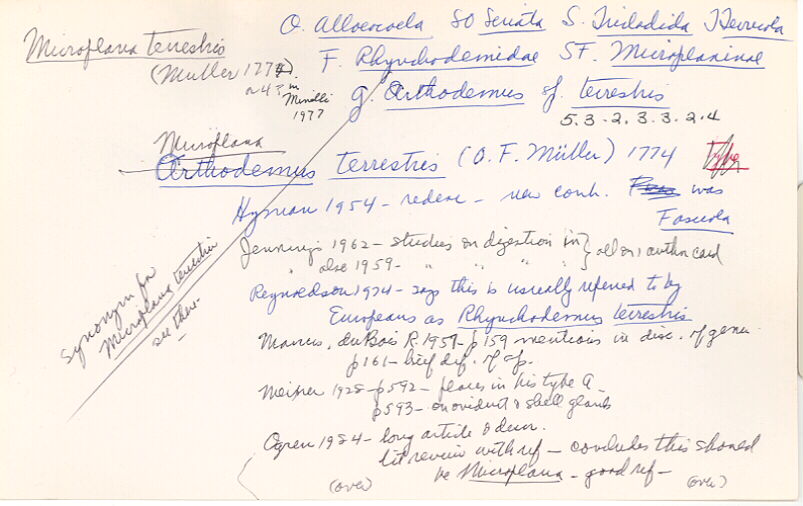 O. Alloeocoela SO Seriata S. Tricladida Terricola
Microplana terrestris
(Muller 1774).
or 4? in Minelli 1977
F. Rhynchodemidae SF. Microplaninae
g. Orthodemus sf. terrestris
5.3.2.3.3.2.4
Microplana
Orthodemus terrestris (O.F. Müller) 1774 Type
Hyman 1954 - redesc - new comb. was
Fasciola
Jennings 1962 - studies on digestion in } all on 1 author card
" also 1959 - " " " "
Reynoldson 1974 - says this is usually refered to by
Europeans as Rhynchodemus terrestris
Marcus, du Bois R. 1959 - p 159 mentions in disc. of genus
p 161 - brief dif. of sp.
Meixner 1928 - p 592 - places in his type A -
p 593 - on oviduct & shell glands
Ogren 1984 - long article & descr.
lit review with ref - concludes this should
be Microplana - good ref -
(over) (over)
Synonym for
Microplana terrestris
see there -